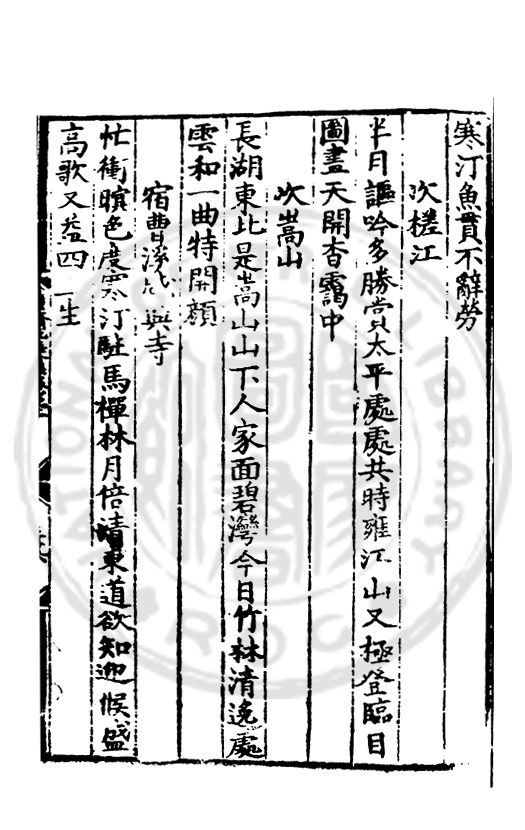 寒汀魚貫不辭勞
次槎江
半月謳吟多勝賞太平處處共時雍江山又極登臨目
圖畫天開杳靄中
次嵩山
長湖東北是嵩山山下人家面碧灣今日竹林清逸處
雲和一曲特開顏
宿曹溪興寺
忙衝暝色度寒汀駐馬禪林月倍清東道欲知迎候盛
高歌又益四一生